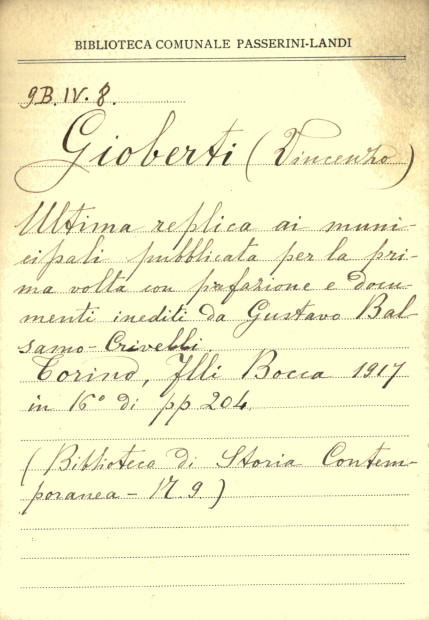 BIBLIOTECA COMUNALE PASSERINI-LANDI
9B.IV.8.
Gioberti (Vincenzo)
Ultima replica ai muni-
cipali pubblicata per la pri-
ma volta con prefazione e docu-
menti inediti da Gustavo Bal
samo-Crivelli.
Torino, Flli Bocca 1917
in 16° di pp 204.
(Biblioteca di Storia Contem-
poranea - N. 9)